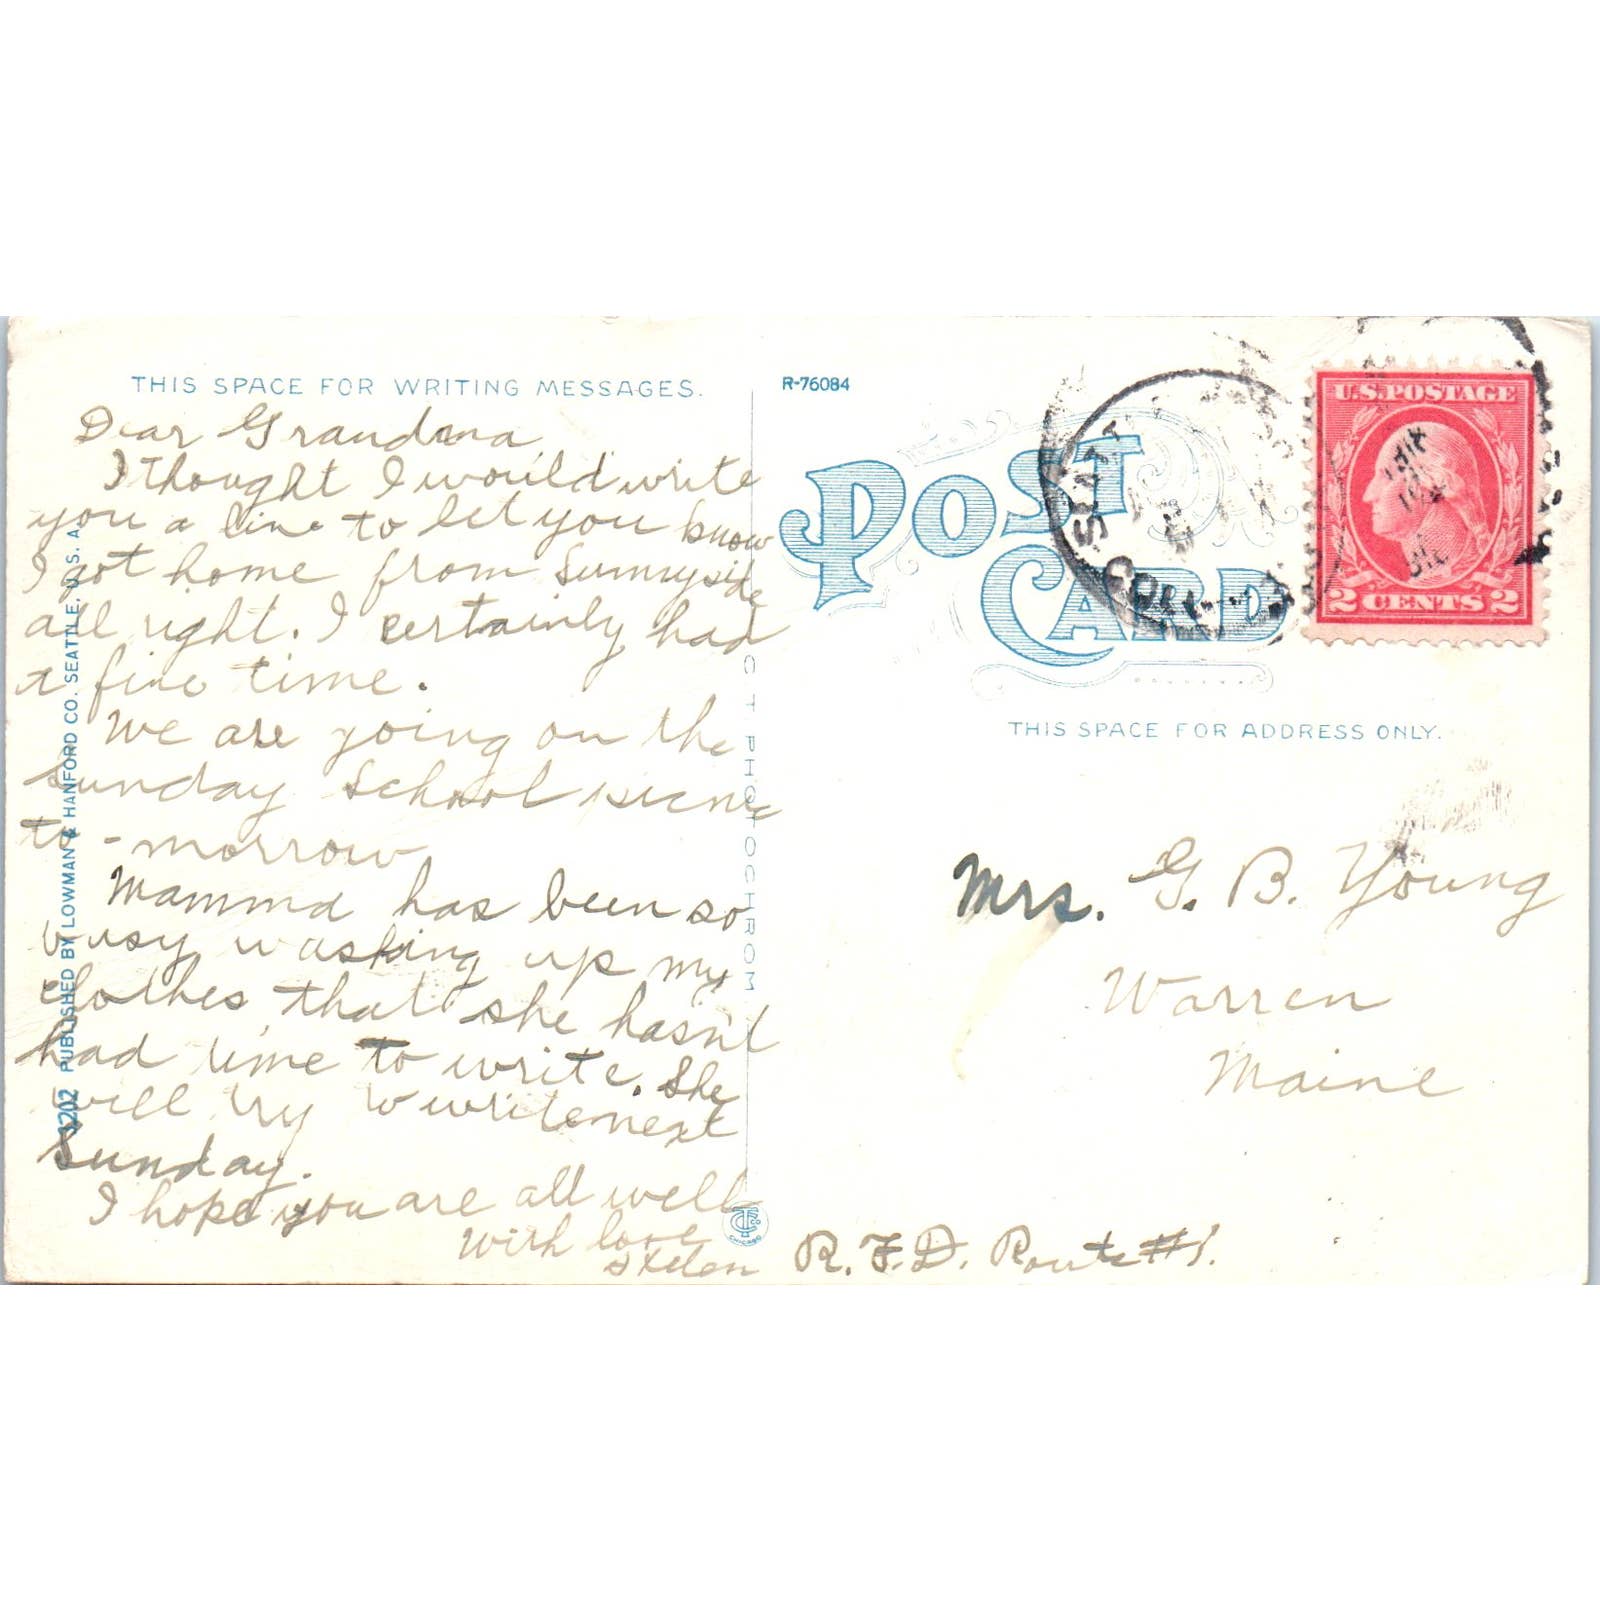 THIS SPACE FOR WRITING MESSAGES.
Dear Grandma
I thought I would write
you a line to let you know
I got home from Sunnyside
all right. I certainly had
a fine time.
We are going on the
Sunday School picnic
to-morrow
Mamma has been so
busy washing up my
clothes that she hasn't
had time to write. She
will try to write next
Sunday.
I hope you are all well
With love
Helen
3202 PUBLISHED BY LOWMAN & HANFORD CO. SEATTLE, U. S. A.
C T PHOTOCHROM
CHICAGO
R-76084
POST
CARD
U.S. POSTAGE
2 CENTS 2
THIS SPACE FOR ADDRESS ONLY.
Mrs. G. B. Young
Warren
Maine
R. F. D. Route #1.